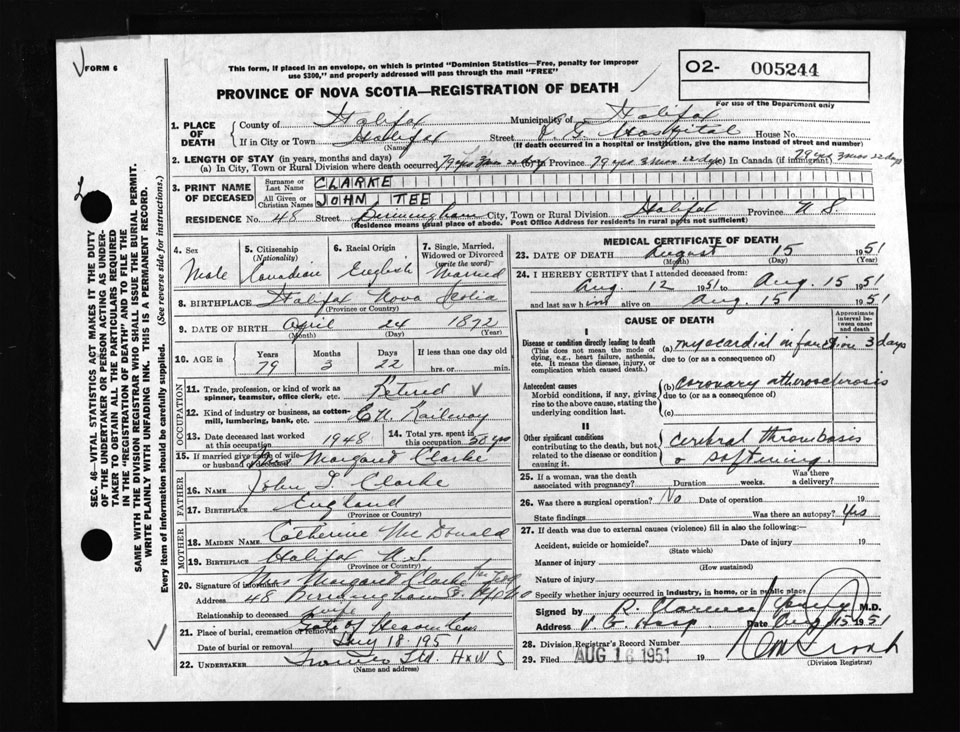 FORM 6
This form, if placed in an envelope, on which is printed "Dominion Statistics—Free, penalty for improper
use $300," and properly addressed will pass through the mail "FREE"
PROVINCE OF NOVA SCOTIA—REGISTRATION OF DEATH
O2- 005244
For use of the Department only
SEC. 46—VITAL STATISTICS ACT MAKES IT THE DUTY
OF THE UNDERTAKER OR PERSON ACTING AS UNDER-
TAKER TO OBTAIN ALL THE PARTICULARS REQUIRED
IN THE "REGISTRATION OF DEATH" AND TO FILE THE
SAME WITH THE DIVISION REGISTRAR WHO SHALL ISSUE THE BURIAL PERMIT.
WRITE PLAINLY WITH UNFADING INK. THIS IS A PERMANENT RECORD.
Every item of information should be carefully supplied. (See reverse side for instructions.)
1. PLACE OF DEATH County of Halifax Municipality of Halifax
If in City or Town Halifax Street V. G. Hospital House No.
(Name) (If death occurred in a hospital or institution, give the name instead of street and number)
2. LENGTH OF STAY (in years, months and days)
(a) In City, Town or Rural Division where death occurred 79 yrs 3 mos 22 days Province 79 yrs 3 mos 22 days In Canada (if immigrant) 79 yrs 3 mos 22 days
3. PRINT NAME OF DECEASED Surname or Last Name CLARKE
All Given or Christian Names JOHN TEE
RESIDENCE No. 48 Street Bermingham City, Town or Rural Division Halifax Province N S
(Residence means usual place of abode. Post Office Address for residents in rural parts not sufficient)
4. Sex Male
5. Citizenship (Nationality) Canadian
6. Racial Origin English
7. Single, Married, Widowed or Divorced (write the word) Married
8. BIRTHPLACE Halifax Nova Scotia
(Province or Country)
9. DATE OF BIRTH April 24 1872
(Month) (Day) (Year)
10. AGE in Years 79 Months 3 Days 22 If less than one day old hrs. or min.
OCCUPATION
11. Trade, profession, or kind of work as spinner, teamster, office clerk, etc. Retired
12. Kind of industry or business, as cotton-mill, lumbering, bank, etc. C.N. Railway
13. Date deceased last worked at this occupation 1948
14. Total yrs. spent in this occupation 50 yrs
15. If married give name of wife or husband of deceased Mrs Margaret Clarke
FATHER
16. Name John T. Clarke
17. Birthplace England
(Province or Country)
MOTHER
18. MAIDEN NAME Catherine McDonald
19. BIRTHPLACE Halifax N.S
(Province or Country)
20. Signature of informant Mrs Margaret Clarke
Address 48 Bermingham St.
Relationship to deceased wife
21. Place of burial, cremation or removal Gate of Heaven
Date of burial or removal Aug 18 1951
22. UNDERTAKER Ltd. Hx N S
(Name and address)
MEDICAL CERTIFICATE OF DEATH
23. DATE OF DEATH August 15 1951
(Month) (Day) (Year)
24. I HEREBY CERTIFY that I attended deceased from
Aug. 12 1951 to Aug. 15 1951
and last saw him alive on Aug. 15 1951
CAUSE OF DEATH
Approximate interval between onset and death
I
Disease or condition directly leading to death
(This does not mean the mode of dying, e.g., heart failure, asthenia, etc. It means the disease, injury, or complication which caused death.)
(a) myocardial infarction 3 days
due to (or as a consequence of)
Antecedent causes
Morbid conditions, if any, giving rise to the above cause, stating the underlying condition last.
(b) coronary atherosclerosis
due to (or as a consequence of)
(c)
II
Other significant conditions
contributing to the death, but not related to the disease or condition causing it.
cerebral thrombosis
& softening.
25. If a woman, was the death associated with pregnancy? Duration weeks. Was there a delivery?
26. Was there a surgical operation? No Date of operation 19
State findings Was there an autopsy? Yes
27. If death was due to external causes (violence) fill in also the following:—
Accident, suicide or homicide? Date of injury 19
(State which)
Manner of injury
(How sustained)
Nature of injury
Specify whether injury occurred in industry, in home, or in public place
Signed by R. Clarence Young M.D.
Address V. G. Hosp Date Aug 15 1951
28. Division Registrar's Record Number
29. Filed AUG 16 1951 19
(Division Registrar)